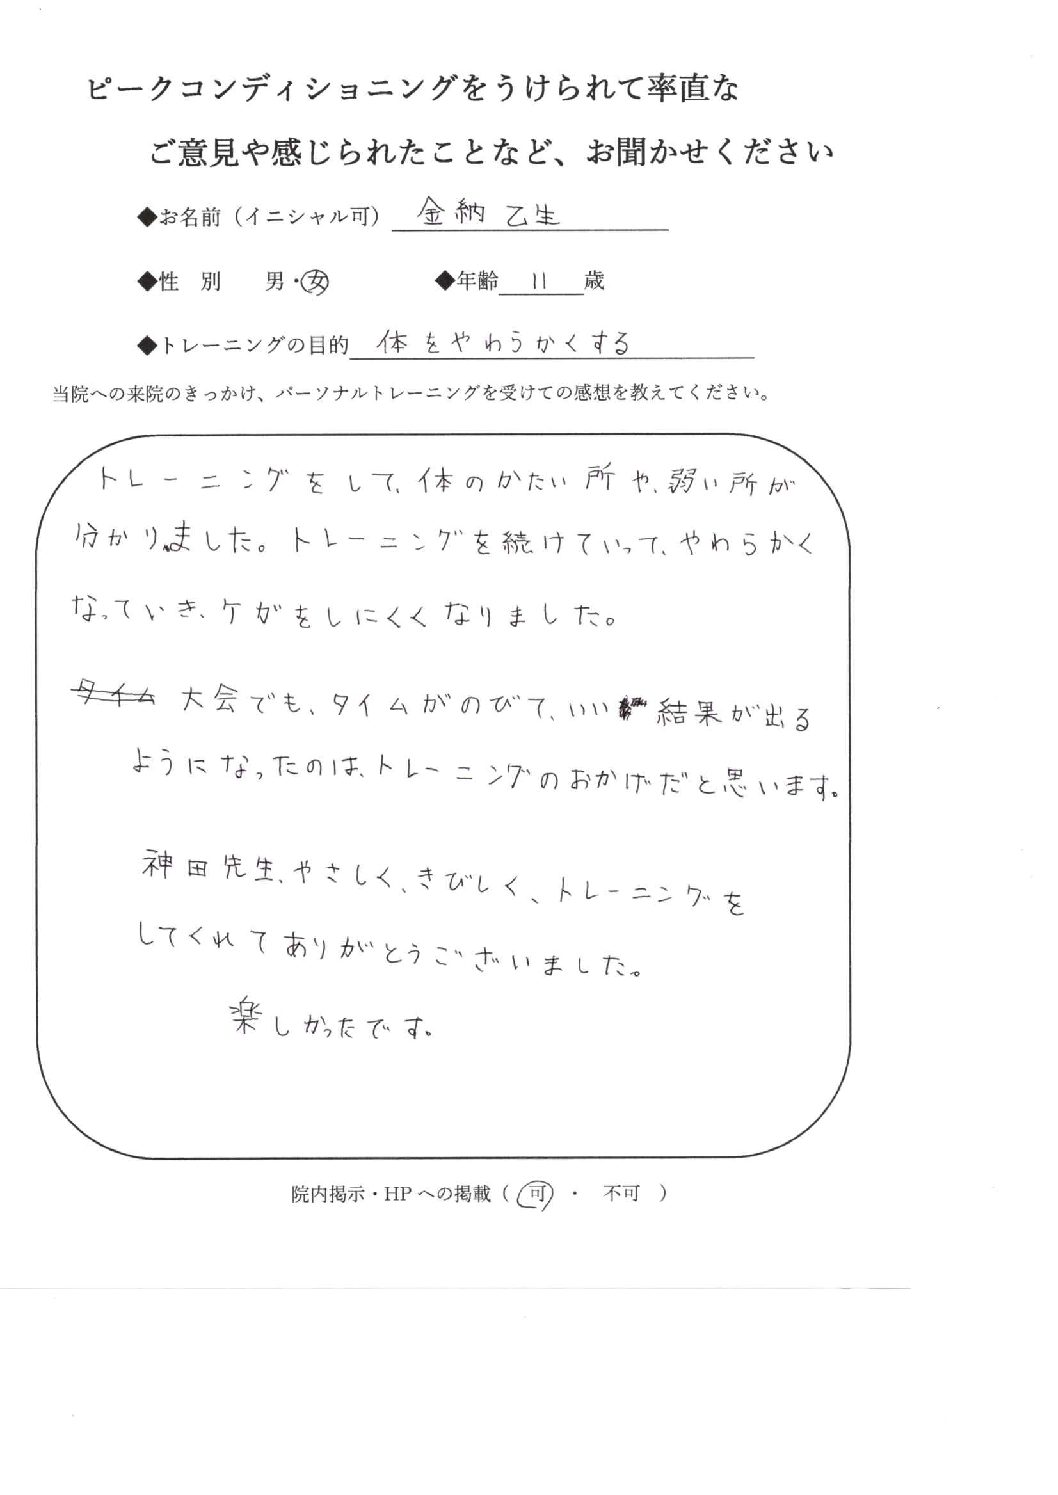 ピークコンディショニングをうけられて率直な
ご意見や感じられたことなど、お聞かせください
◆お名前（イニシャル可） 金納 乙生
◆性 別 男・女 ◆年齢 11 歳
◆トレーニングの目的 体をやわらかくする
当院への来院のきっかけ、パーソナルトレーニングを受けての感想を教えてください。
トレーニングをして、体のかたい所や、弱い所が
分かりました。トレーニングを続けていって、やわらかく
なっていき、ケガをしにくくなりました。
タイム 大会でも、タイムがのびて、いい 結果が出る
ようになったのは、トレーニングのおかげだと思います。
神田先生、やさしく、きびしく、トレーニングを
してくれてありがとうございました。
楽しかったです。
院内掲示・HPへの掲載（ 可 ・ 不可 ）